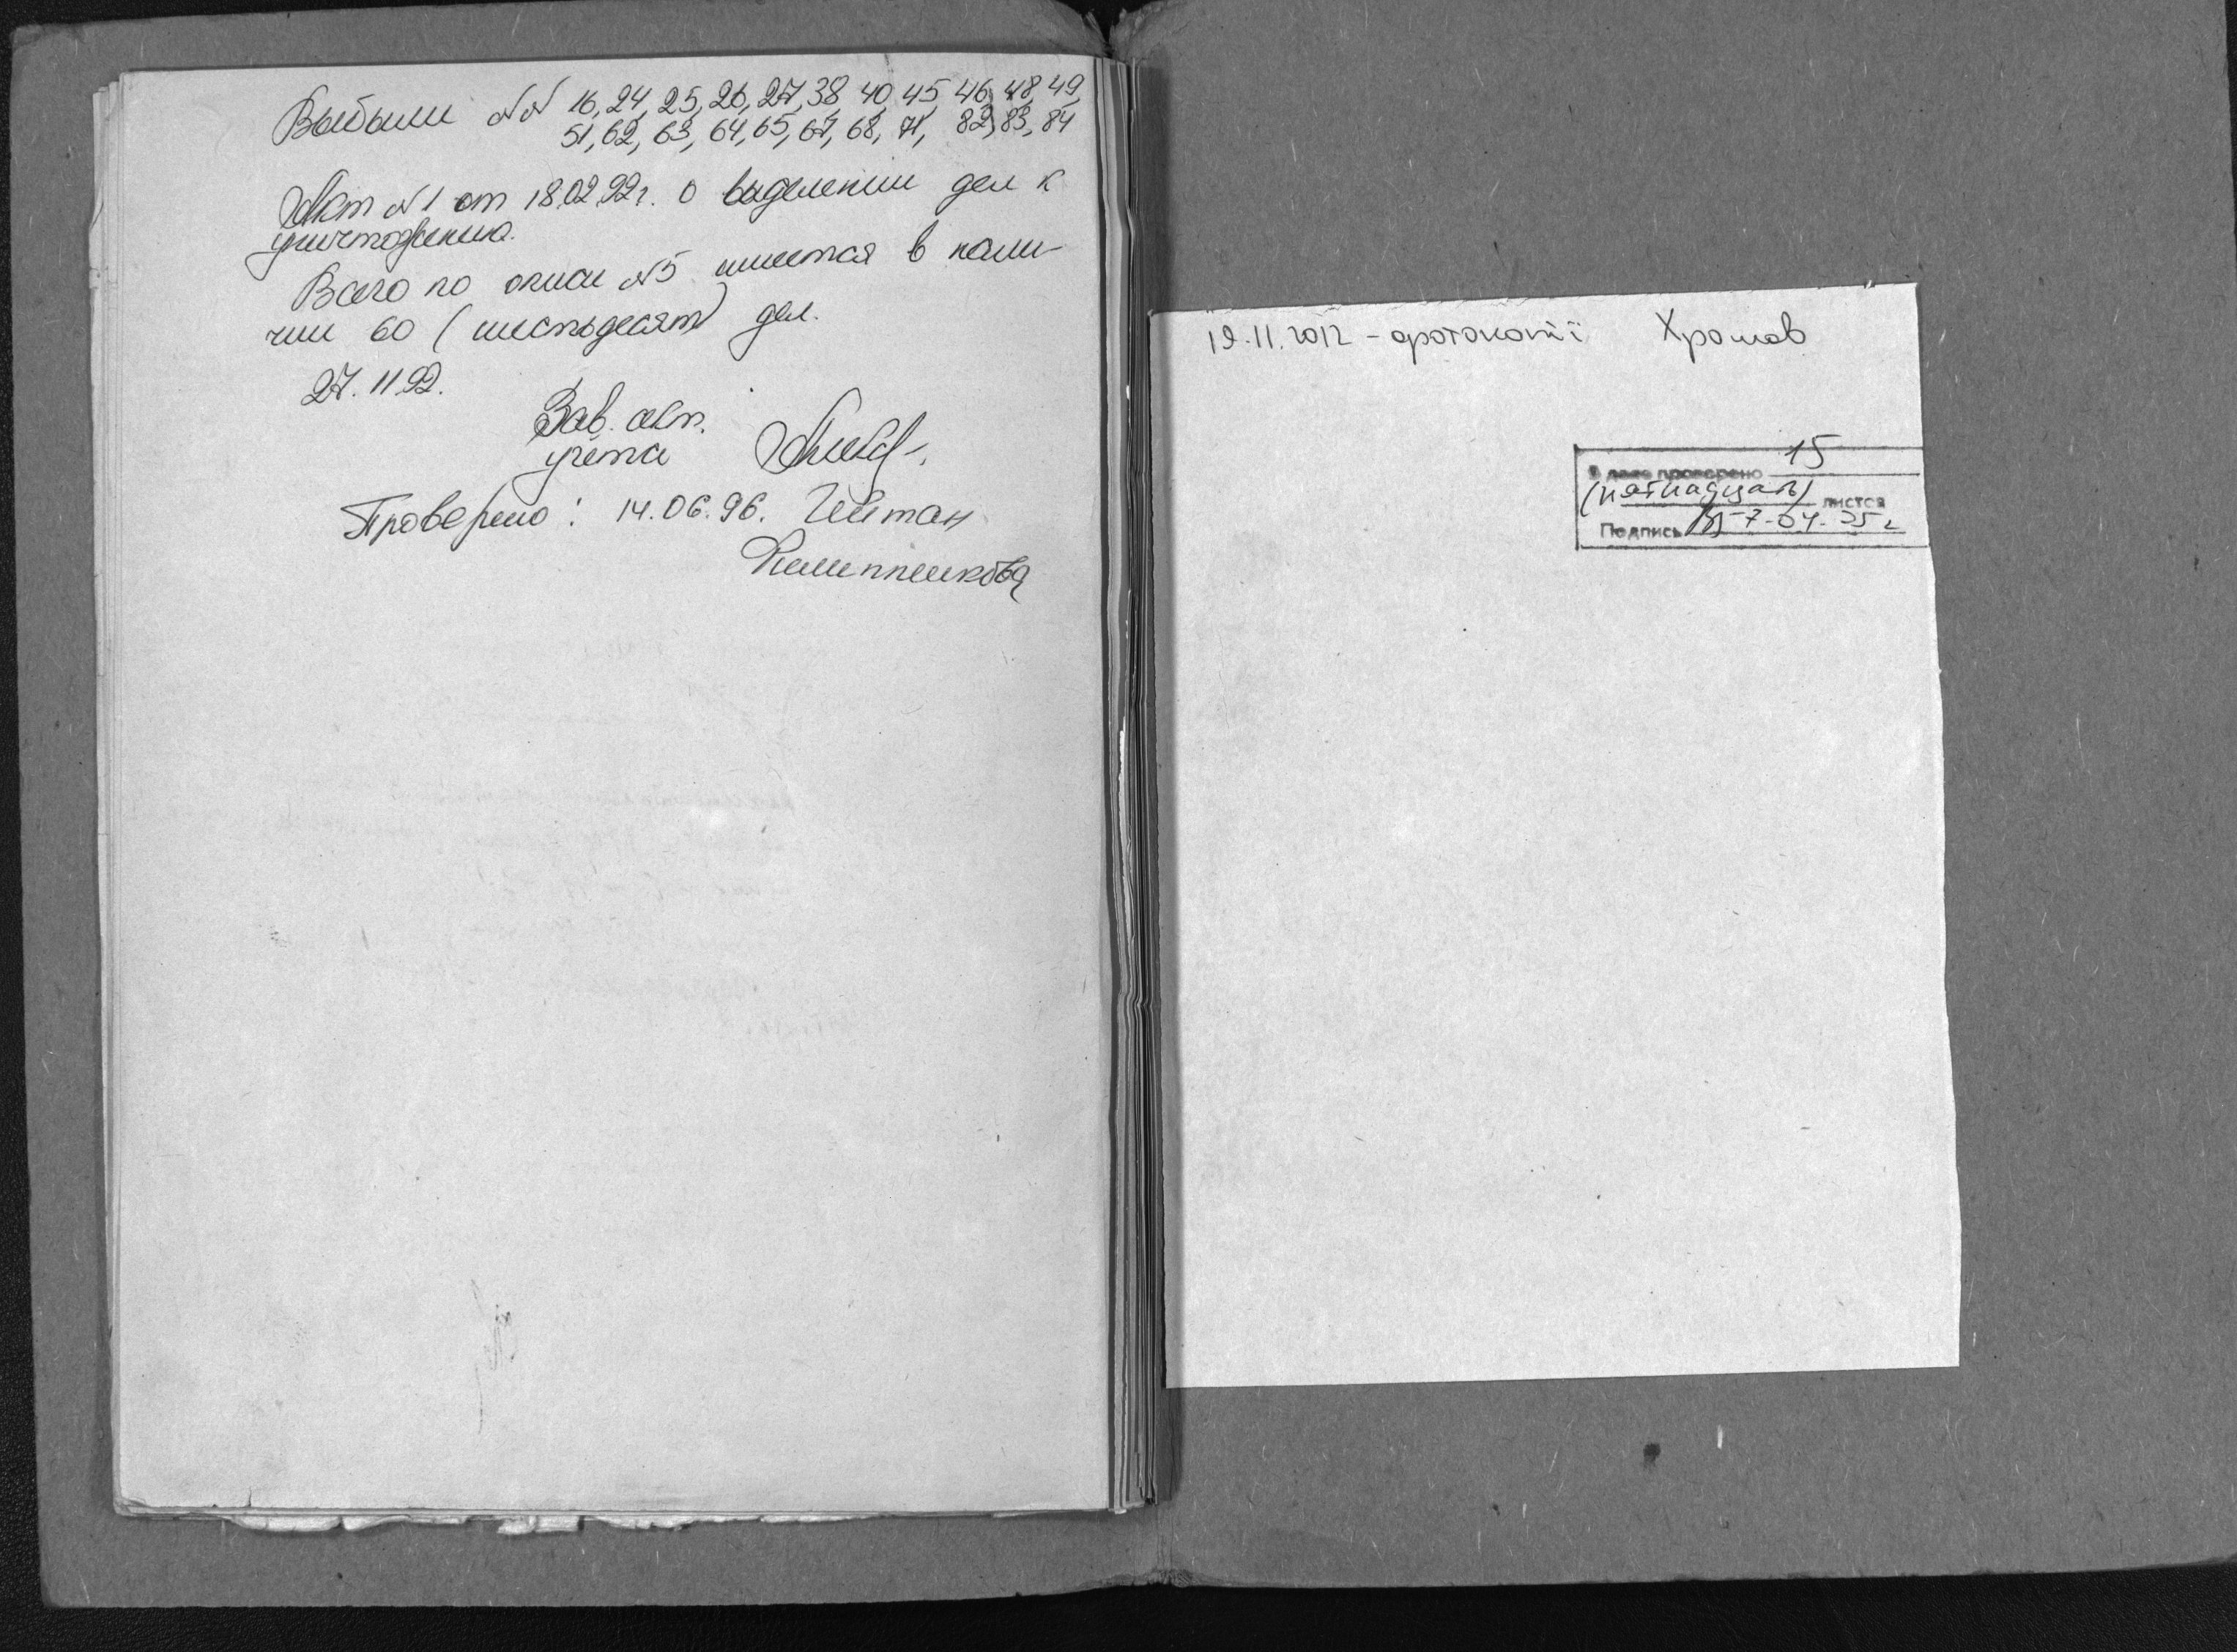 Выбыли №№ 16, 24, 25, 26, 27, 38, 40, 45, 46, 48, 49,
51, 62, 63, 64, 65, 67, 68, 71, 82, 83, 84
Акт №1 от 18.02.92 г. о выделении дел к
уничтожению.
Всего по описи №5 имеется в нали-
чии 60 (шестьдесят) дел.
27.11.92.
Зав. отд.
учёта
Проверено: 14.06.96.
19.11.2012 - фотокопії Хромов
В деле проверено 15
(пятнадцать) листов
Подпись